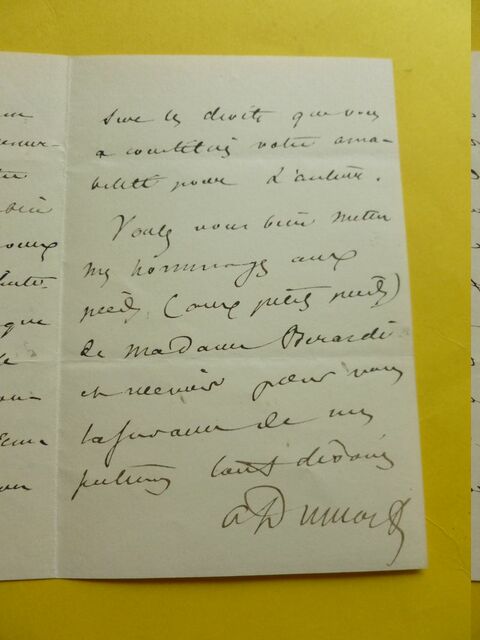 sur les droits que vous
a constitués votre ama-
bilité pour l'auteur.
Voulez vous bien mettre
mes hommages aux
pieds (aux petits pieds)
de madame Berardi
et recevoir pour vous
l'assurance de mes
sentiments tout dévoués
A Dumas f
que